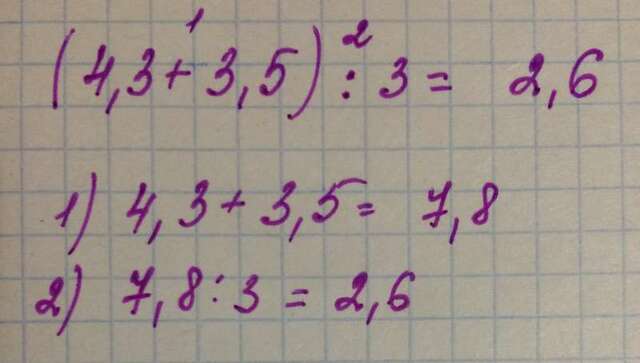 1 2
(4,3+3,5) : 3 = 2,6
1) 4,3 + 3,5 = 7,8
2) 7,8 : 3 = 2,6